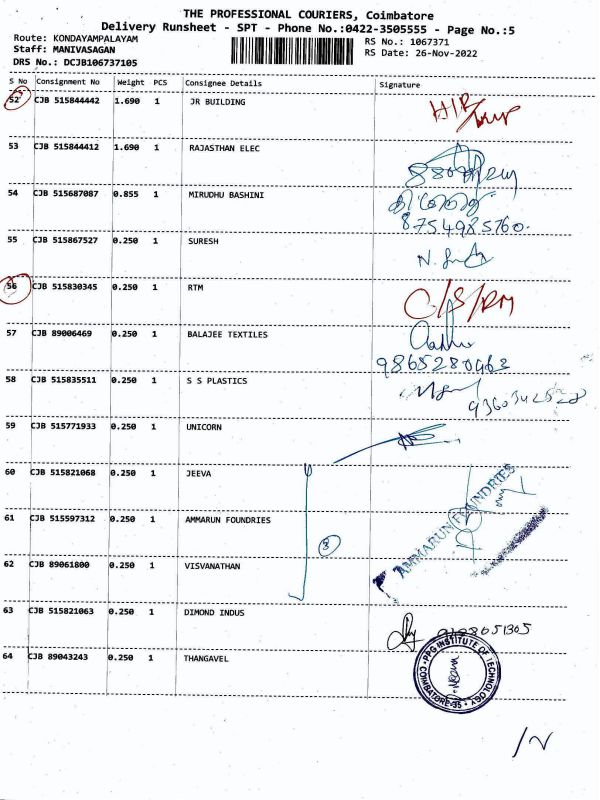 THE PROFESSIONAL COURIERS, Coimbatore
Delivery Runsheet - SPT - Phone No.:0422-3505555 - Page No.:5
Route: KONDAYAMPALAYAM
Staff: MANIVASAGAN
DRS No.: DCJB106737105
RS No.: 1067371
RS Date: 26-Nov-2022
S No Consignment No Weight PCS Consignee Details Signature
52 CJB 515844442 1.690 1 JR BUILDING
53 CJB 515844412 1.690 1 RAJASTHAN ELEC
54 CJB 515687087 0.855 1 MIRUDHU BASHINI
8754985760.
55 CJB 515867527 0.250 1 SURESH
56 CJB 515830345 0.250 1 RTM C/S/RM
57 CJB 89006469 0.250 1 BALAJEE TEXTILES
9865280463
58 CJB 515835511 0.250 1 S S PLASTICS
59 CJB 515771933 0.250 1 UNICORN
60 CJB 515821068 0.250 1 JEEVA
61 CJB 515597312 0.250 1 AMMARUN FOUNDRIES AMMARUN FOUNDRIES
3
62 CJB 89061800 0.250 1 VISVANATHAN
63 CJB 515821063 0.250 1 DIMOND INDUS
64 CJB 89043243 0.250 1 THANGAVEL
PPG INSTITUTE OF TECHNOLOGY
COIMBATORE-35